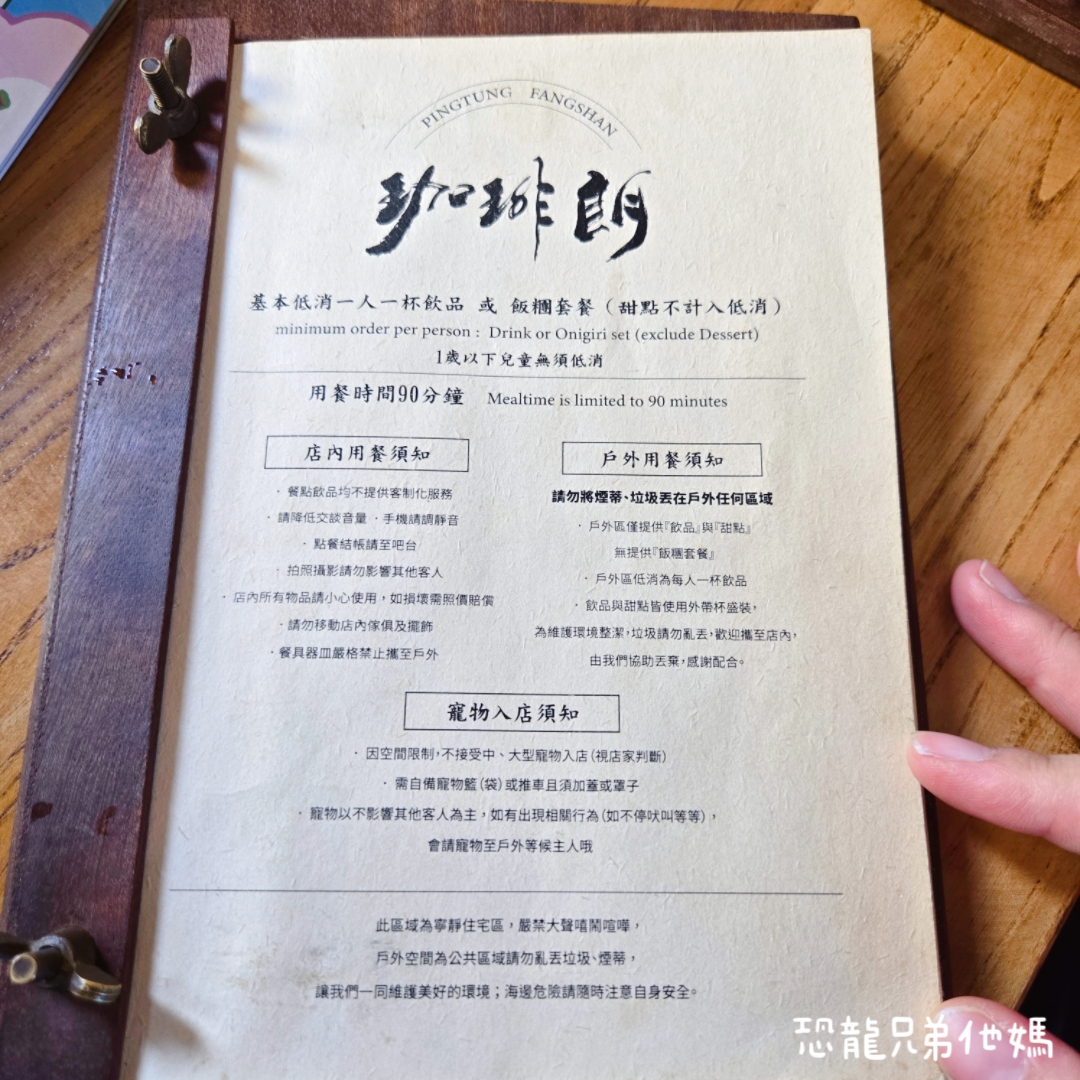 PINGTUNG FANGSHAN
珈琲朗
基本低消一人一杯飲品 或 飯糰套餐（甜點不計入低消）
minimum order per person : Drink or Onigiri set (exclude Dessert)
1歲以下兒童無須低消
用餐時間90分鐘 Mealtime is limited to 90 minutes
店內用餐須知
· 餐點飲品均不提供客制化服務
· 請降低交談音量 · 手機請調靜音
· 點餐結帳請至吧台
· 拍照攝影請勿影響其他客人
· 店內所有物品請小心使用，如損壞需照價賠償
· 請勿移動店內傢俱及擺飾
· 餐具器皿嚴格禁止攜至戶外
戶外用餐須知
請勿將煙蒂、垃圾丟在戶外任何區域
· 戶外區僅提供『飲品』與『甜點』
無提供『飯糰套餐』
· 戶外區低消為每人一杯飲品
· 飲品與甜點皆使用外帶杯盛裝，
為維護環境整潔，垃圾請勿亂丟，歡迎攜至店內，
由我們協助丟棄，感謝配合。
寵物入店須知
· 因空間限制，不接受中、大型寵物入店（視店家判斷）
· 需自備寵物籃（袋）或推車且須加蓋或罩子
· 寵物以不影響其他客人為主，如有出現相關行為（如不停吠叫等等），
會請寵物至戶外等候主人哦
此區域為寧靜住宅區，嚴禁大聲嘻鬧喧嘩，
戶外空間為公共區域請勿亂丟垃圾、煙蒂，
讓我們一同維護美好的環境；海邊危險請隨時注意自身安全。
恐龍兄弟他媽